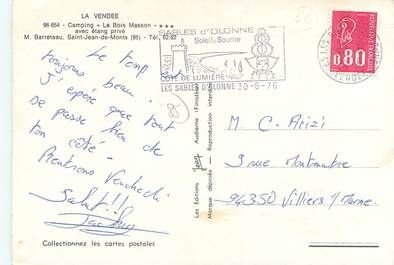 LA VENDEE
96 654 - Camping « Le Bois Masson » ★★★
avec étang privé
M. Barreteau, Saint-Jean-de-Monts (85) - Tél. 62.62
Le temp est
toujours beau.
J'espère que tout
se passe bien de
ton côté -
Rentrons Vendredi
Salut!!
Collectionnez les cartes postales
Les Editions Jean Audierne (Finistère)
Marque déposée - Reproduction interdite
SABLES d'OLONNE
Soleil, Sourire
COTE DE LUMIERE
LES SABLES D'OLONNE 30-6-76
REPUBLIQUE FRANCAISE
0,80
85
M C. Arizi
3 rue Montmartre
94350 Villiers s/ Marne.